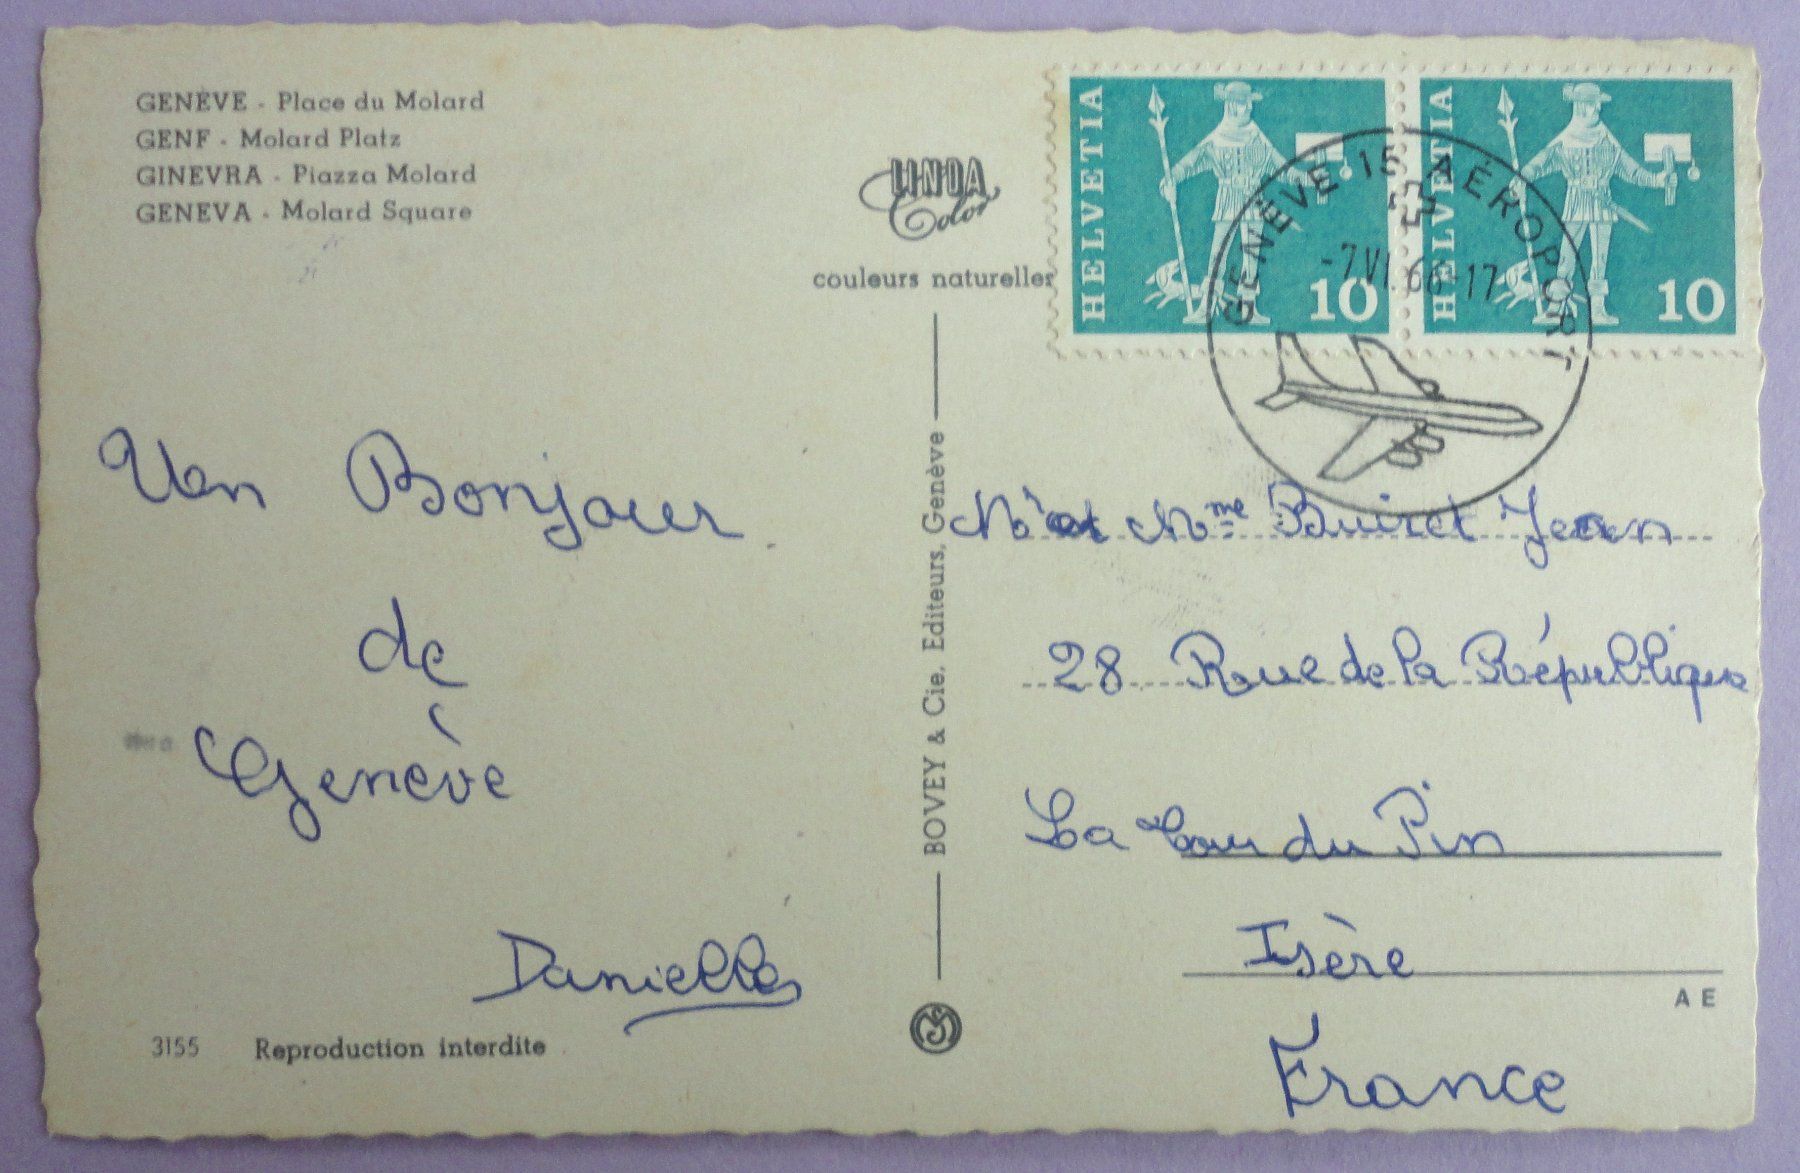 GENÈVE - Place du Molard
GENF - Molard Platz
GINEVRA - Piazza Molard
GENEVA - Molard Square
LINDA
Color
couleurs naturelles
HELVETIA
10
HELVETIA
10
GENÈVE 15 AÉROPORT
-7.VI.66-17
Un Bonjour
de
Genève
Danielle
BOVEY & Cie. Editeurs, Genève
M et Mme Buiret Jean
28 Rue de la République
La Tour du Pin
Isère
France
A E
3155 Reproduction interdite